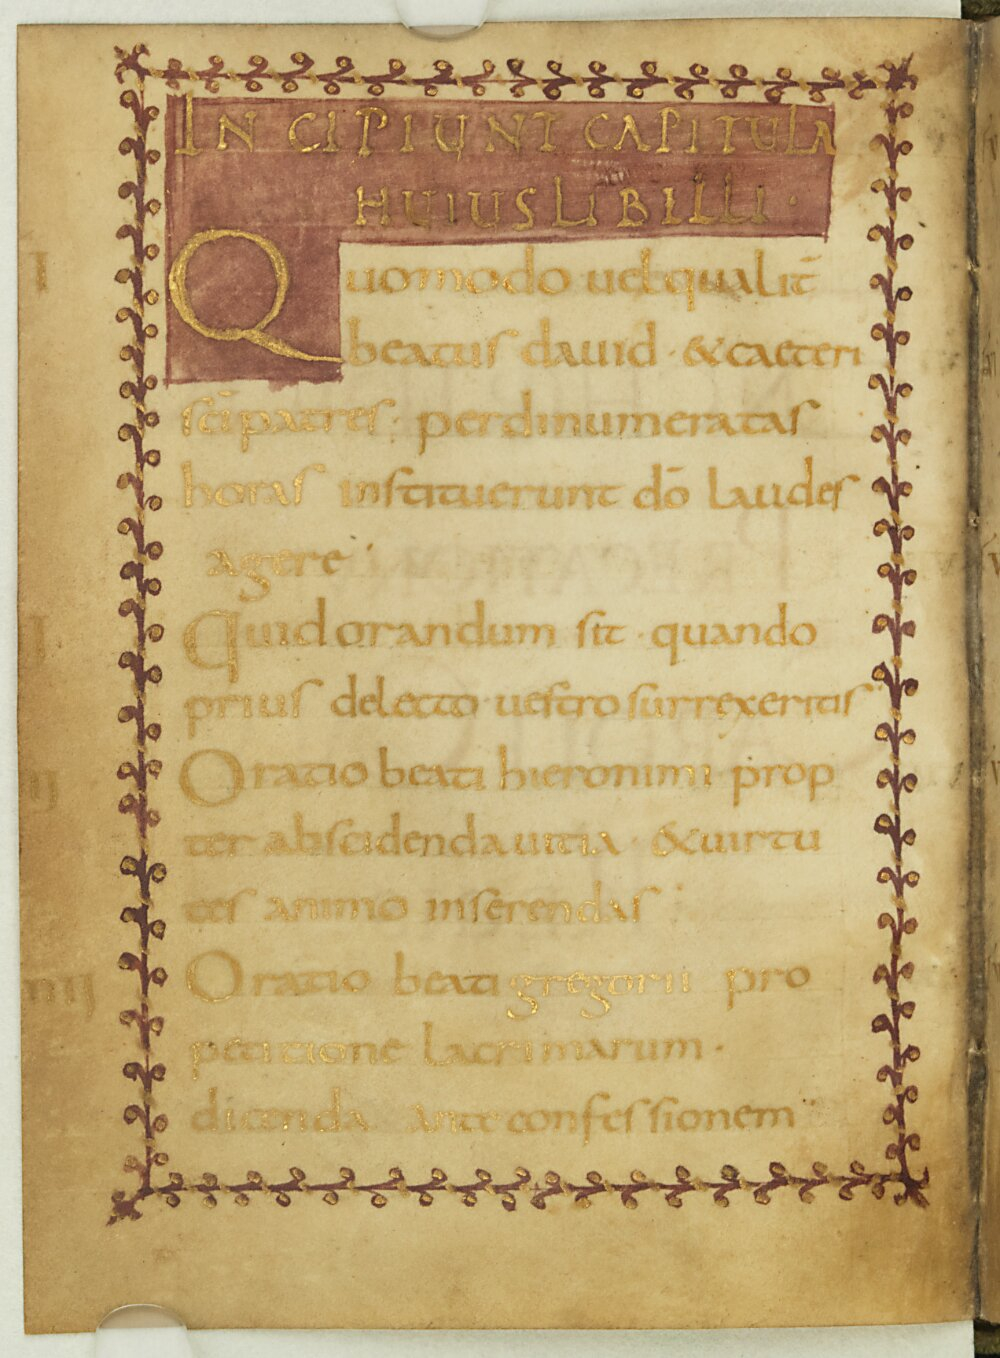 INCIPIUNT CAPITULA
HUIUS LIBILLI ·
I Quomodo uel qualit̄
beatus dauid · & caeteri
sc̄i patres · per dinumeratas
horas instituerunt dō laudes
agere
II Quid orandum sit · quando
prius de lecto uestro surrexeritis
III Oratio beati hieronimi prop
ter abscidenda uitia · & uirtu
tes animo inserendas
IIII Oratio beati gregorii pro
petitione lacrimarum ·
dicenda ante confessionem